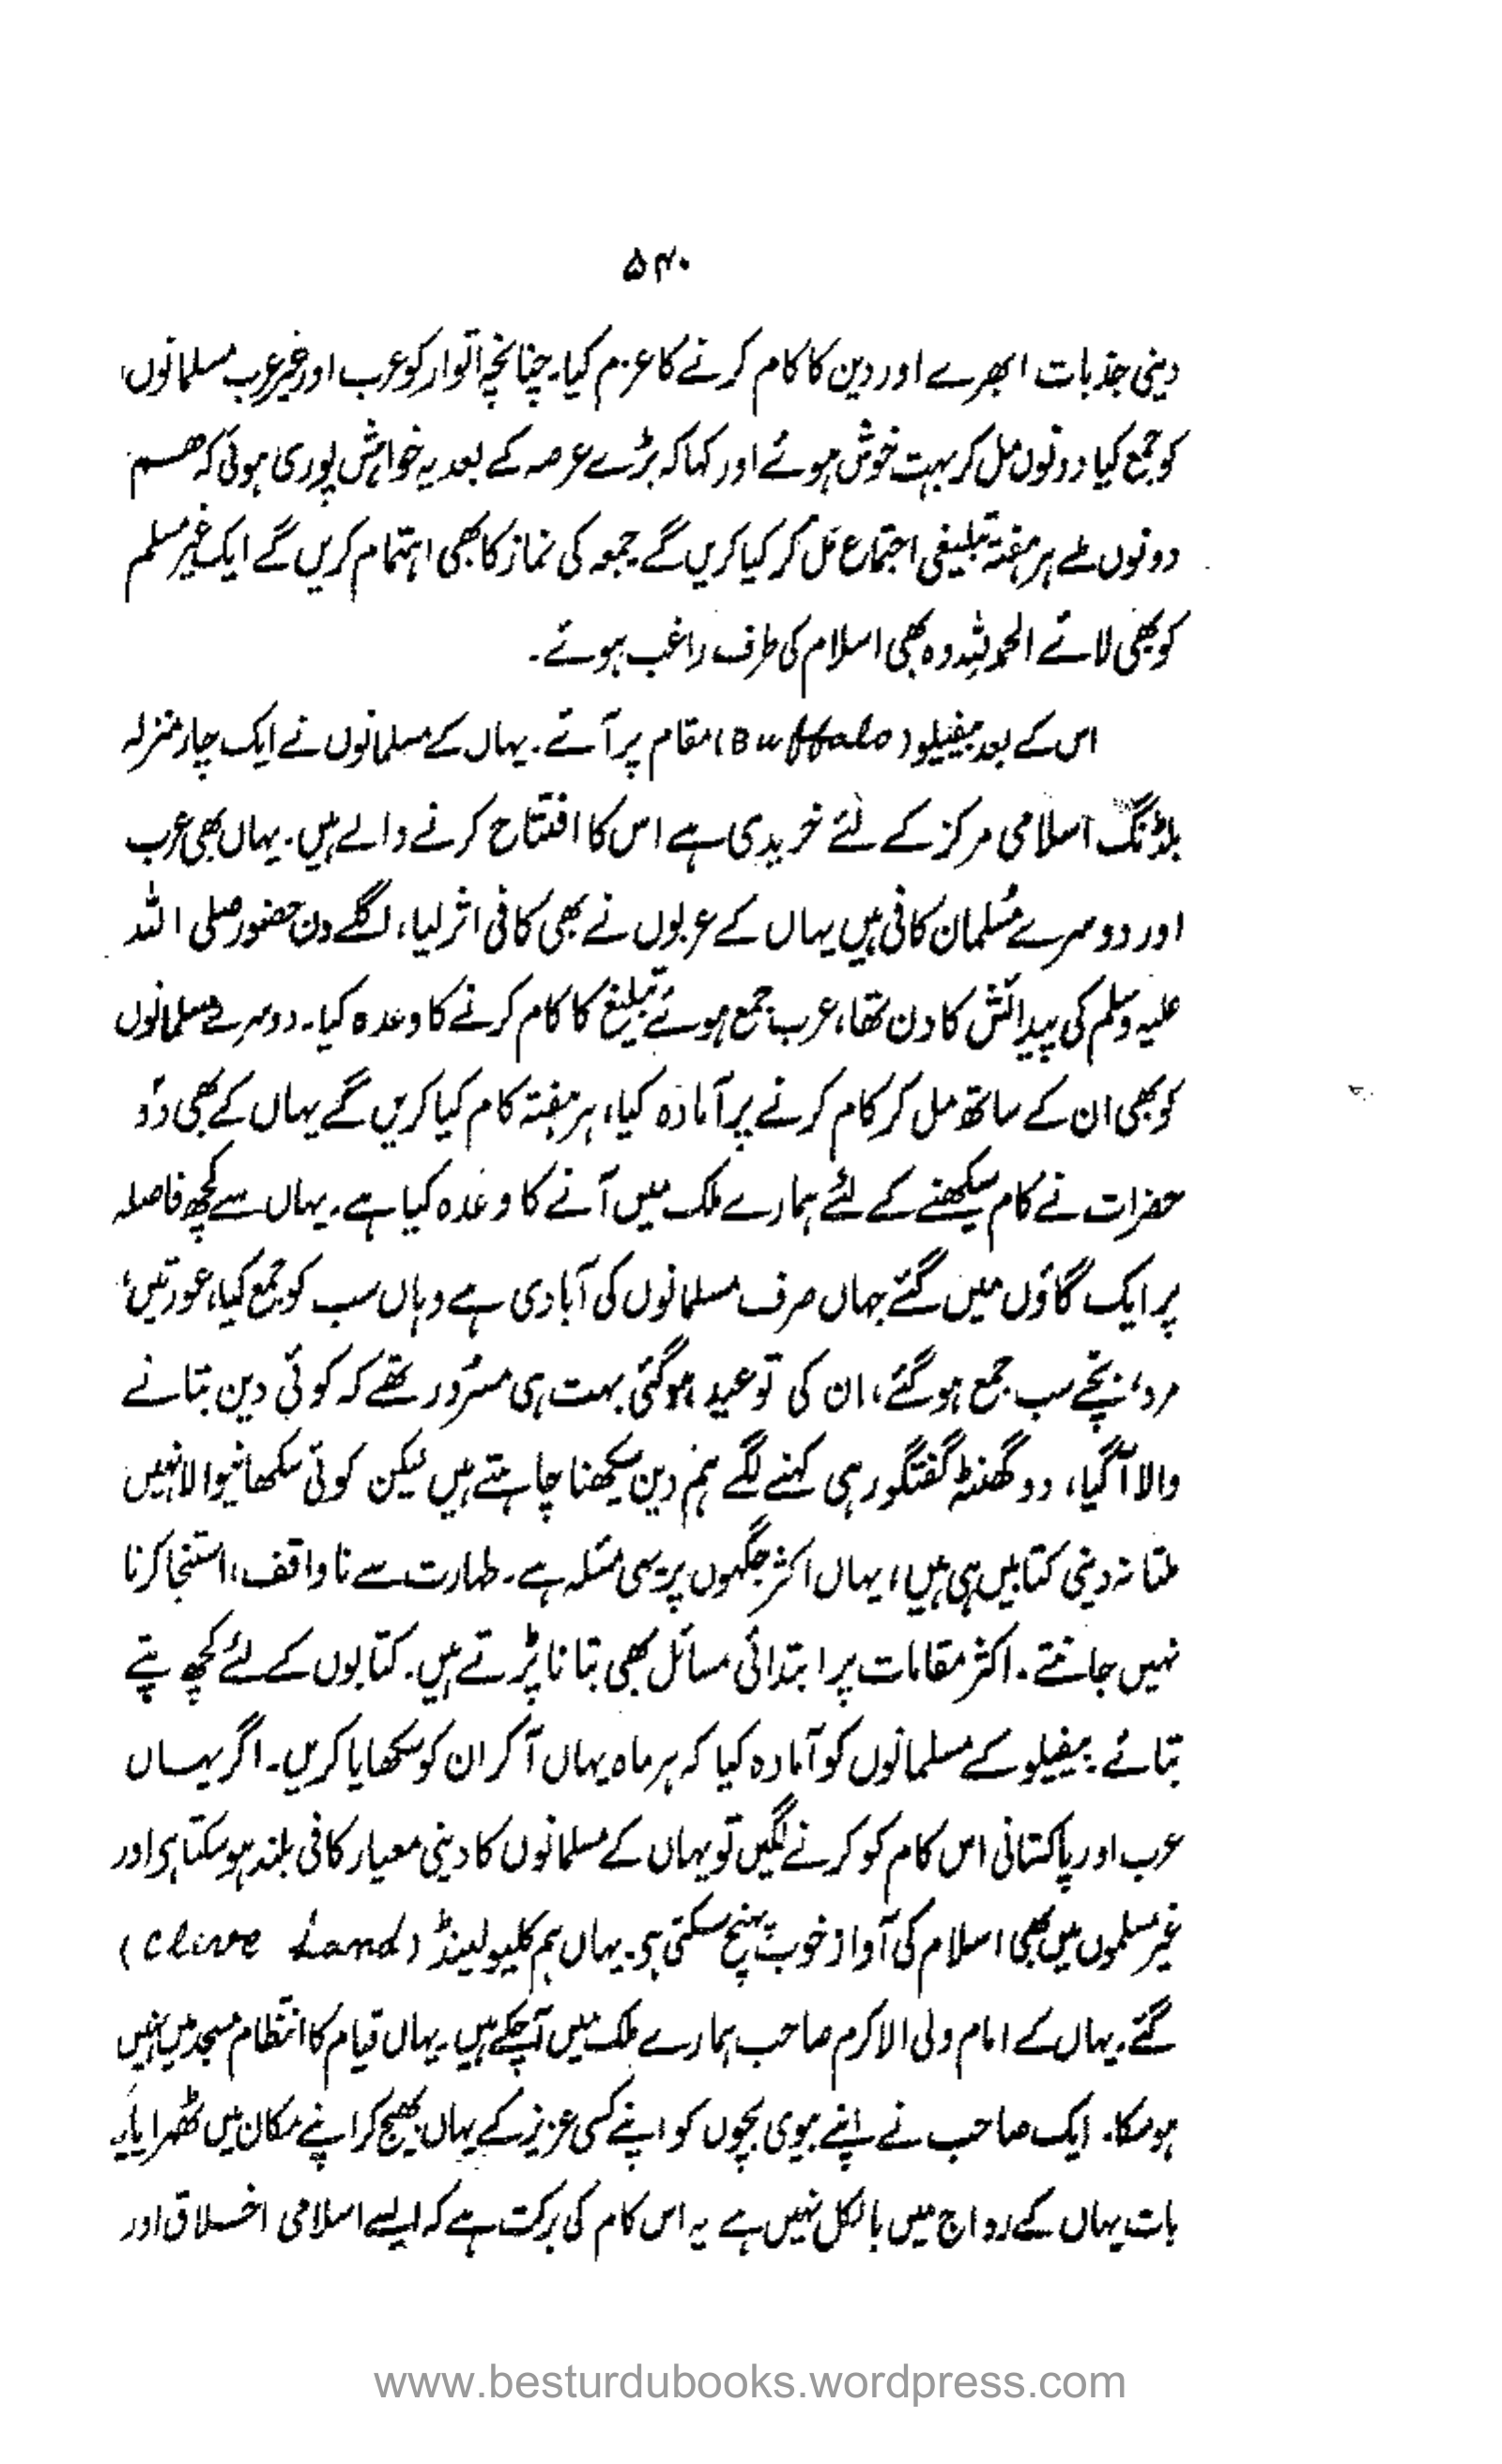 ۵۴۰
دینی جذبات ابھرے اور دین کا کام کرنے کا عزم کیا۔ چنانچہ اتوار کو عرب اور غیر عرب مسلمانوں
کو جمع کیا دونوں مل کر بہت خوش ہوئے اور کہا کہ بڑے عرصہ کے بعد یہ خواہش پوری ہوئی کہ ھم
دونوں ملے ہر ہفتہ تبلیغی اجتماع مل کر کیا کریں گے جمعہ کی نماز کا بھی اہتمام کریں گے ایک غیر مسلم
کو بھی لائے الحمد للہ وہ بھی اسلام کی طرف راغب ہوئے۔
اس کے بعد بیفیلو (Buffalo) مقام پر آئے۔ یہاں کے مسلمانوں نے ایک چار منزلہ
بلڈنگ اسلامی مرکز کے لئے خریدی ہے اس کا افتتاح کرنے والے ہیں۔ یہاں بھی عرب
اور دوسرے مُسلمان کافی ہیں یہاں کے عربوں نے بھی کافی اثر لیا، اگلے دن حضور صلی اللہ
علیہ وسلم کی پیدائش کا دن تھا، عرب جمع ہوئے تبلیغ کا کام کرنے کا وعدہ کیا۔ دوسرے مسلمانوں
کو بھی ان کے ساتھ مل کر کام کرنے پر آمادہ کیا، ہر ہفتہ کام کیا کریں گے یہاں کے بھی دو
حضرات نے کام سیکھنے کے لئے ہمارے ملک میں آنے کا وعدہ کیا ہے۔ یہاں سے کچھ فاصلہ
پر ایک گاؤں میں گئے جہاں صرف مسلمانوں کی آبادی ہے وہاں سب کو جمع کیا، عورتیں،
مرد، بچے سب جمع ہو گئے، ان کی تو عید ہو گئی بہت ہی مسرُور تھے کہ کوئی دین بتانے
والا آ گیا، دو گھنٹہ گفتگو رہی کہنے لگے ہم دین سیکھنا چاہتے ہیں لیکن کوئی سکھانیوالا نہیں
ملتا نہ دینی کتابیں ہی ہیں، یہاں اکثر جگہوں پر یہی مسئلہ ہے۔ طہارت سے ناواقف، استنجا کرنا
نہیں جانتے۔ اکثر مقامات پر ابتدائی مسائل بھی بتانا پڑتے ہیں۔ کتابوں کے لئے کچھ پتے
بتائے۔ بیفیلو کے مسلمانوں کو آمادہ کیا کہ ہر ماہ یہاں آ کر ان کو سکھایا کریں۔ اگر یہاں
عرب اور پاکستانی اس کام کو کرنے لگیں تو یہاں کے مسلمانوں کا دینی معیار کافی بلند ہو سکتا ہے اور
غیر مسلموں میں بھی اسلام کی آواز خوب پہنچ سکتی ہے۔ یہاں ہم کلیو لینڈ (Cleve Land)
گئے۔ یہاں کے امام ولی الاکرم صاحب ہمارے ملک میں آچکے ہیں۔ یہاں قیام کا انتظام مسجد میں نہیں
ہو سکا۔ ایک صاحب نے اپنے بیوی بچوں کو اپنے کسی عزیز کے یہاں بھیج کر اپنے مکان میں ٹھرایا۔ یہ
بات یہاں کے رواج میں بالکل نہیں ہے یہ اس کام کی برکت ہے کہ ایسے اسلامی اخلاق اور
www.besturdubooks.wordpress.com